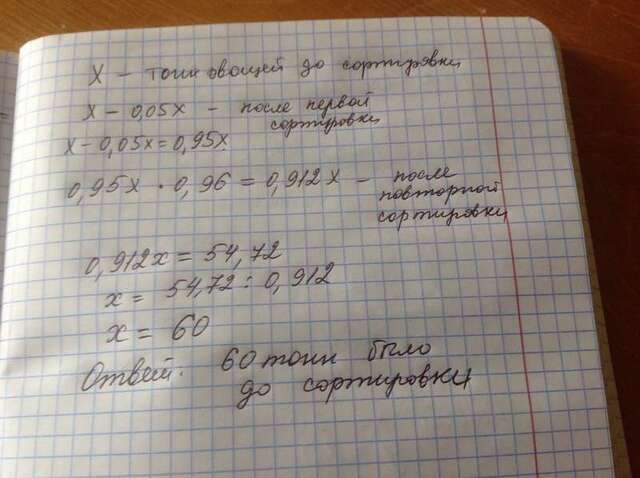 x – тонн овощей до сортировки
x – 0,05x – после первой
сортировки
x – 0,05x = 0,95x
0,95x · 0,96 = 0,912x – после
повторной
сортировки
0,912x = 54,72
x = 54,72 : 0,912
x = 60
Ответ: 60 тонн было
до сортировки